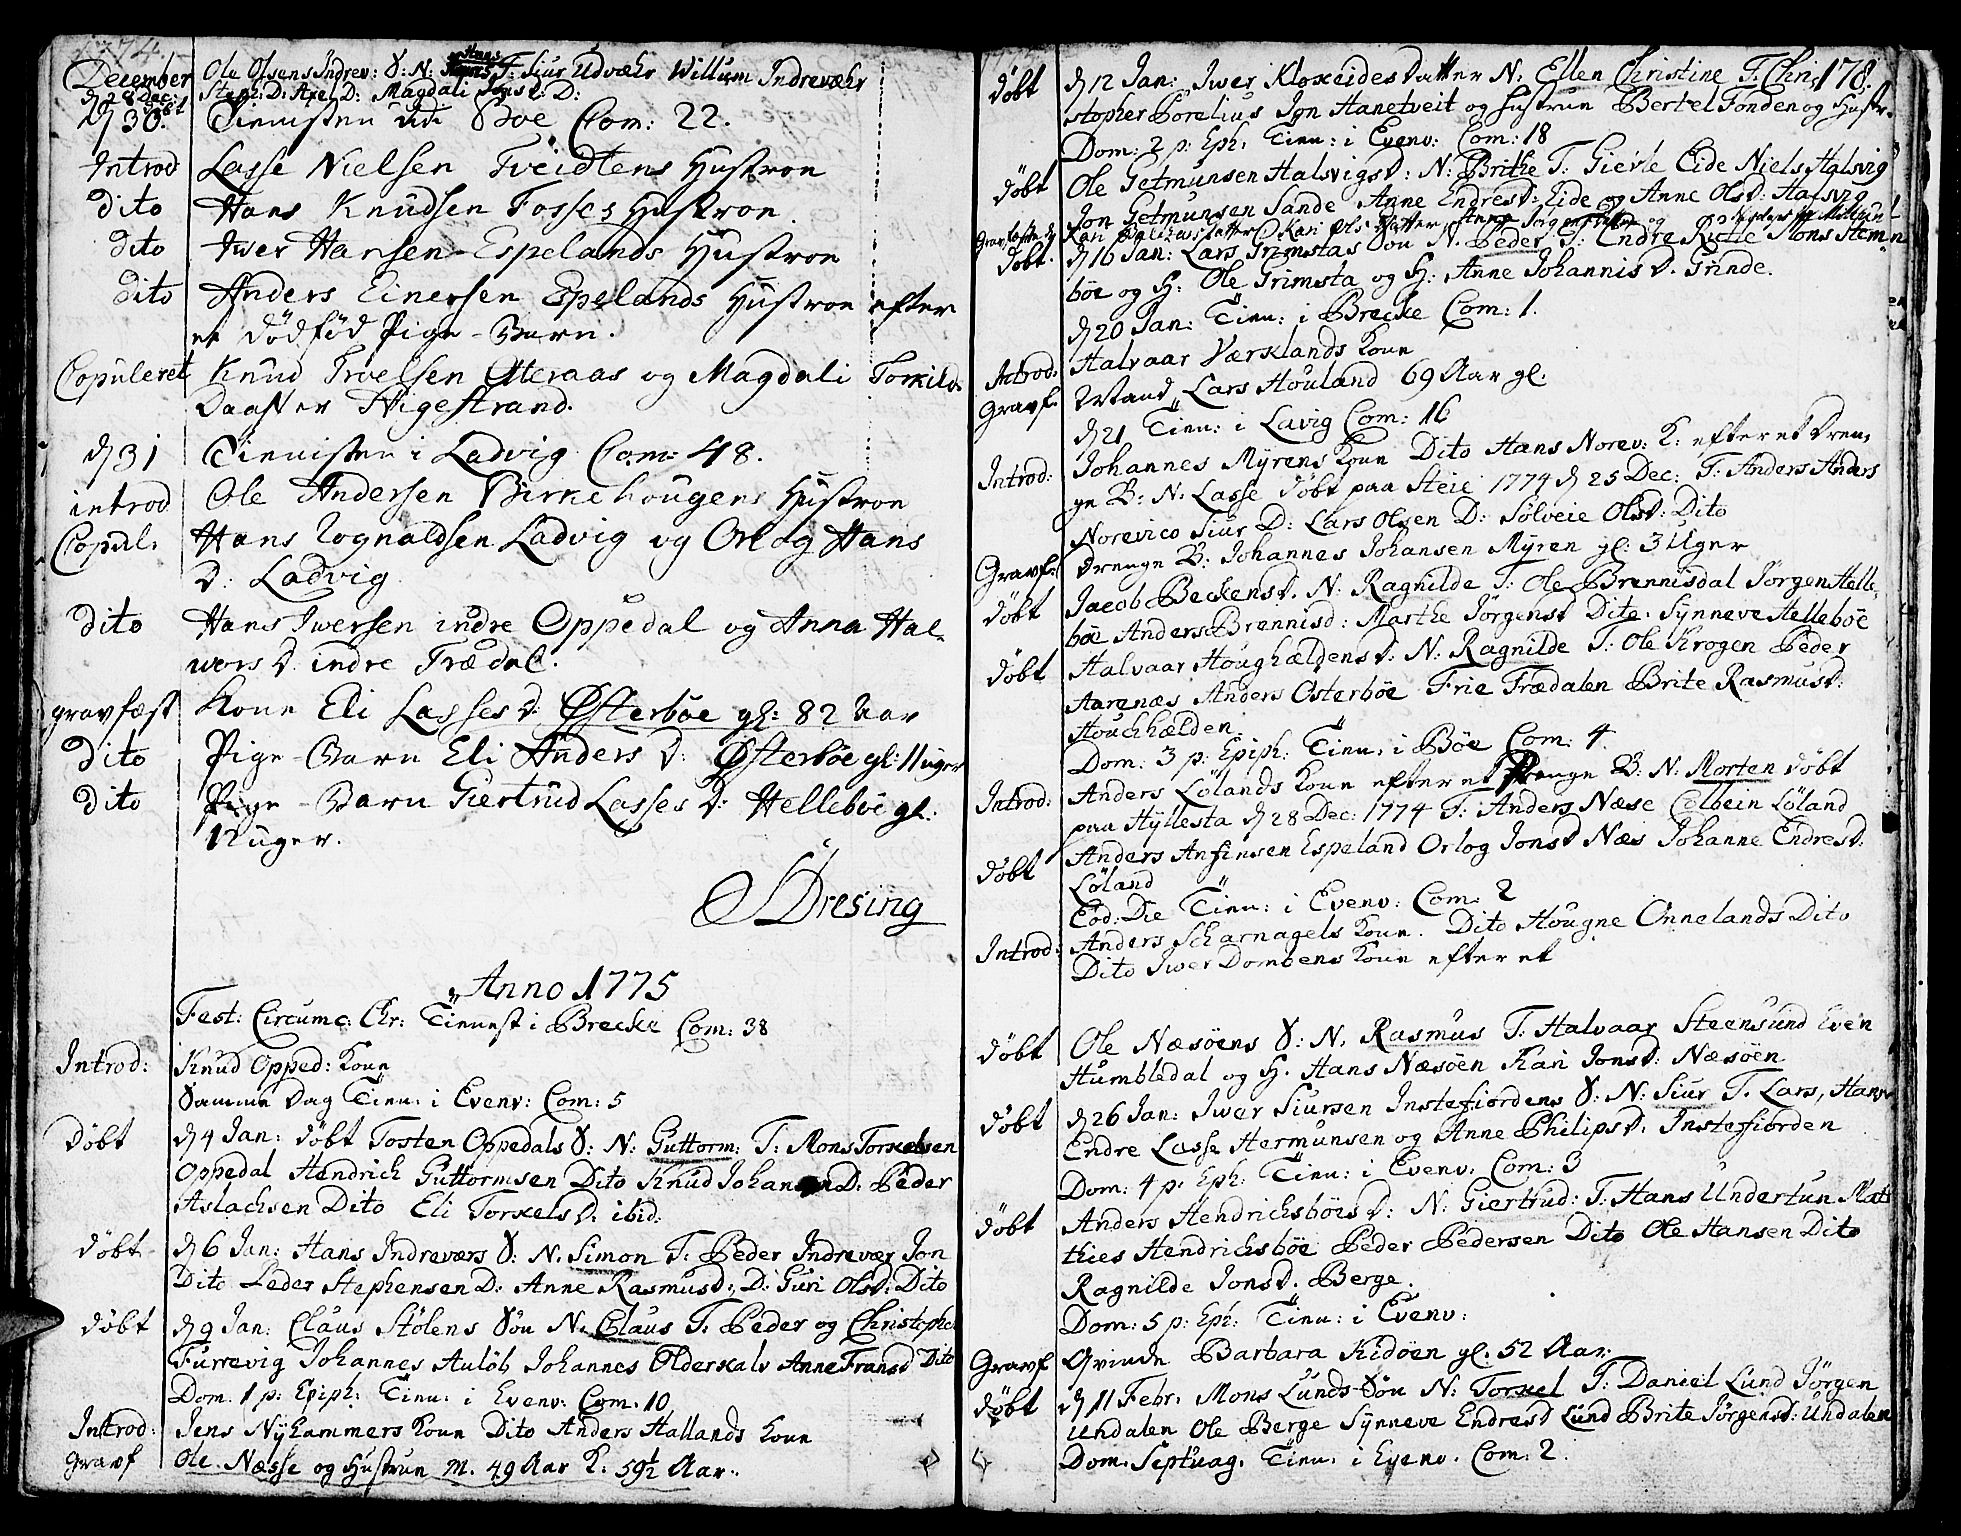 1774.
December Ole Olsens Indrev: S: N: Hans T: Siur Udvæhr Willum Indrevæhr
d 28 Dec: Steph: D: Axel D: Magdali Jonsd: D:
d 30. Tiennisten udi Bøe Com: 22.
Introd Lasse Nielsen Tveidtens Hustroe
dito Hans Knudsen Fosses Hustroe.
dito Iwer Hansen Espelands Hustroe
dito Anders Einersen Espelands Hustroe efter
et dödföd Pige-Barn.
Copuleret Knud Troelsen Otteraas og Magdali Torkilds
Daatter Nigestrand.
d 31 Tiennisten i Ladvig Com: 48.
introd Ole Andersen Birkehougens Hustroe
Copul: Hans Rognaldsen Ladvig og Orlog Hans
D: Ladvig
dito Hans Iwersen indre Oppedal og Anna Hal-
vors D. indre Trædal.
gravfæst Kone Eli Lasses D: Østerbøe gl: 82 Aar
dito Pige-Barn Eli Anders D: Østerböe gl: 11 uger
dito Pige-Barn Giertrud Lasses D: Helleböe gl:
12 uger.
Dresing
Anno 1775
Fest: Circumc: Chr: Tiennest i Brecke Com: 38
Introd: Knud Opped: Kone
Samme Dag Tien: i Evenv: Com: 5
döbt d 4 Jan: döbt Tosten Oppedals S: N: Guttorm: T: Mons Torkelsen
Oppedal Hendrich Guttormsen Dito Knud Johansen D: Peder
Aslachsen Dito Eli Torkels D. ibid:
döbt d 6 Jan: Hans Indreværs S: N: Simon T: Peder Indrevær Jon
Dito Peder Stephensen D: Anne Rasmusd: D: Guri Olsd: Dito
döbt d 9 Jan: Claus Stölens Søn N: Claus T: Peder og Christopher
Furrevig Johannes Aulöb Johannes Olderskalv Anne Fransd Dito
Dom. 1 p: Epiph: Tien: i Evenv: Com: 10
Introd: Jens Nyhammers Kone Dito Anders Hallands Kone
Gravf Ole Næsse og Hustrue M. 49 Aar K. 59½ Aar.
178.
döbt d 12 Jan: Iwer Kloxeides datter N. Ellen Christine T: Chri-
stopher Porelius Jon Hanetveit og hustrue Bertel Fonden og Hustr.
Dom: 2 p: Eph: Tien: i Evenv: Com: 18
döbt Ole Getmunsen Halsvigs D: N: Brithe T: Gierle Eide Niels Halsvig
Jon Getmunsen Sande Anne Endresd: Eide og Anne Olsd: Halsvig
döbt d 16 Jan: Lars Grimstas Søn N. Peder T: Endre Mons Hem-
böe og H: Ole Grimsta og H: Anne Johannis D. Grinde.
d 20 Jan: Tien: i Brecke Com: 1.
Introd: Halvaar Værklands Kone
Gravf. Mand Lars Houland 69 Aar gl.
d 21 Tien: i Lavig Com: 16
Introd: Johannes Myrens Kone Dito Hans Norev: K: efter et Dren-
ge B: N: Lasse döbt paa Steie 1774 d 25 Dec: T: Anders Anders
Norevico Siur D: Lars Olsen D: Sölveie Olsd: Dito
Gravf: Drenge B: Johannes Johansen Myren gl: 3 Uger
döbt Jacob Beckens D. N: Ragnilde T: Ole Brennisdal Jörgen Helle-
böe Anders Brennisd: Marthe Jörgensd Dito: Synneve Helleböe
döbt Halvaar Houghældens D: N: Ragnilde T: Ole Krogen Peder
Aarenæs Anders Osterböe Frie Trædalen Brite Rasmusd:
Houchhælden:
Dom: 3 p: Epiph: Tien: i Böe Com: 4.
Introd: Anders Lölands Kone efter et Drenge B: N: Morten döbt
paa Hyllesta d 28 Dec: 1774 T: Anders Næse Colbein Löland
döbt Anders Anfinsen Espeland Orlog Jonsd Næs Johanne Endresd:
Löland
Eod: Die Tien: i Evenv: Com: 2
Introd: Anders Scharnagels Kone. Dito Hougne Onnelands Dito
Dito Iwer Dombens Kone efter et
döbt Ole Næsöens S: N. Rasmus T: Halvaar Steensund Even
Humbledal og H. Hans Næsöen Kari Jonsd: Næsöen
döbt d 26 Jan: Iwer Siursen Instefiordens S: N: Siur T. Lars, Hans
Endre Lasse Hermunsen og Anne Philips D. Instefiorden
Dom: 4 p: Eph: Tien: i Evenv: Com: 3
döbt Anders Hendrichsböes D: N: Giertrud: T: Hans Undertun Mat-
thies Hendrichsböe Peder Pedersen Dito Ole Hansen Dito
Ragnilde Jonsd. Berge.
Dom: 5 p: Eph: Tien: i Evenv:
Gravf Qvinde Barbara Kidöen gl. 52 Aar.
döbt d 11 Febr. Mons Lunds Søn N: Torkel T: Daniel Lund Jörgen
Undalen Ole Berge Synneve Endresd Lund Brite Jörgensd: Undalen
Dom. Septuag. Tien: i Evenv. Com: 2.